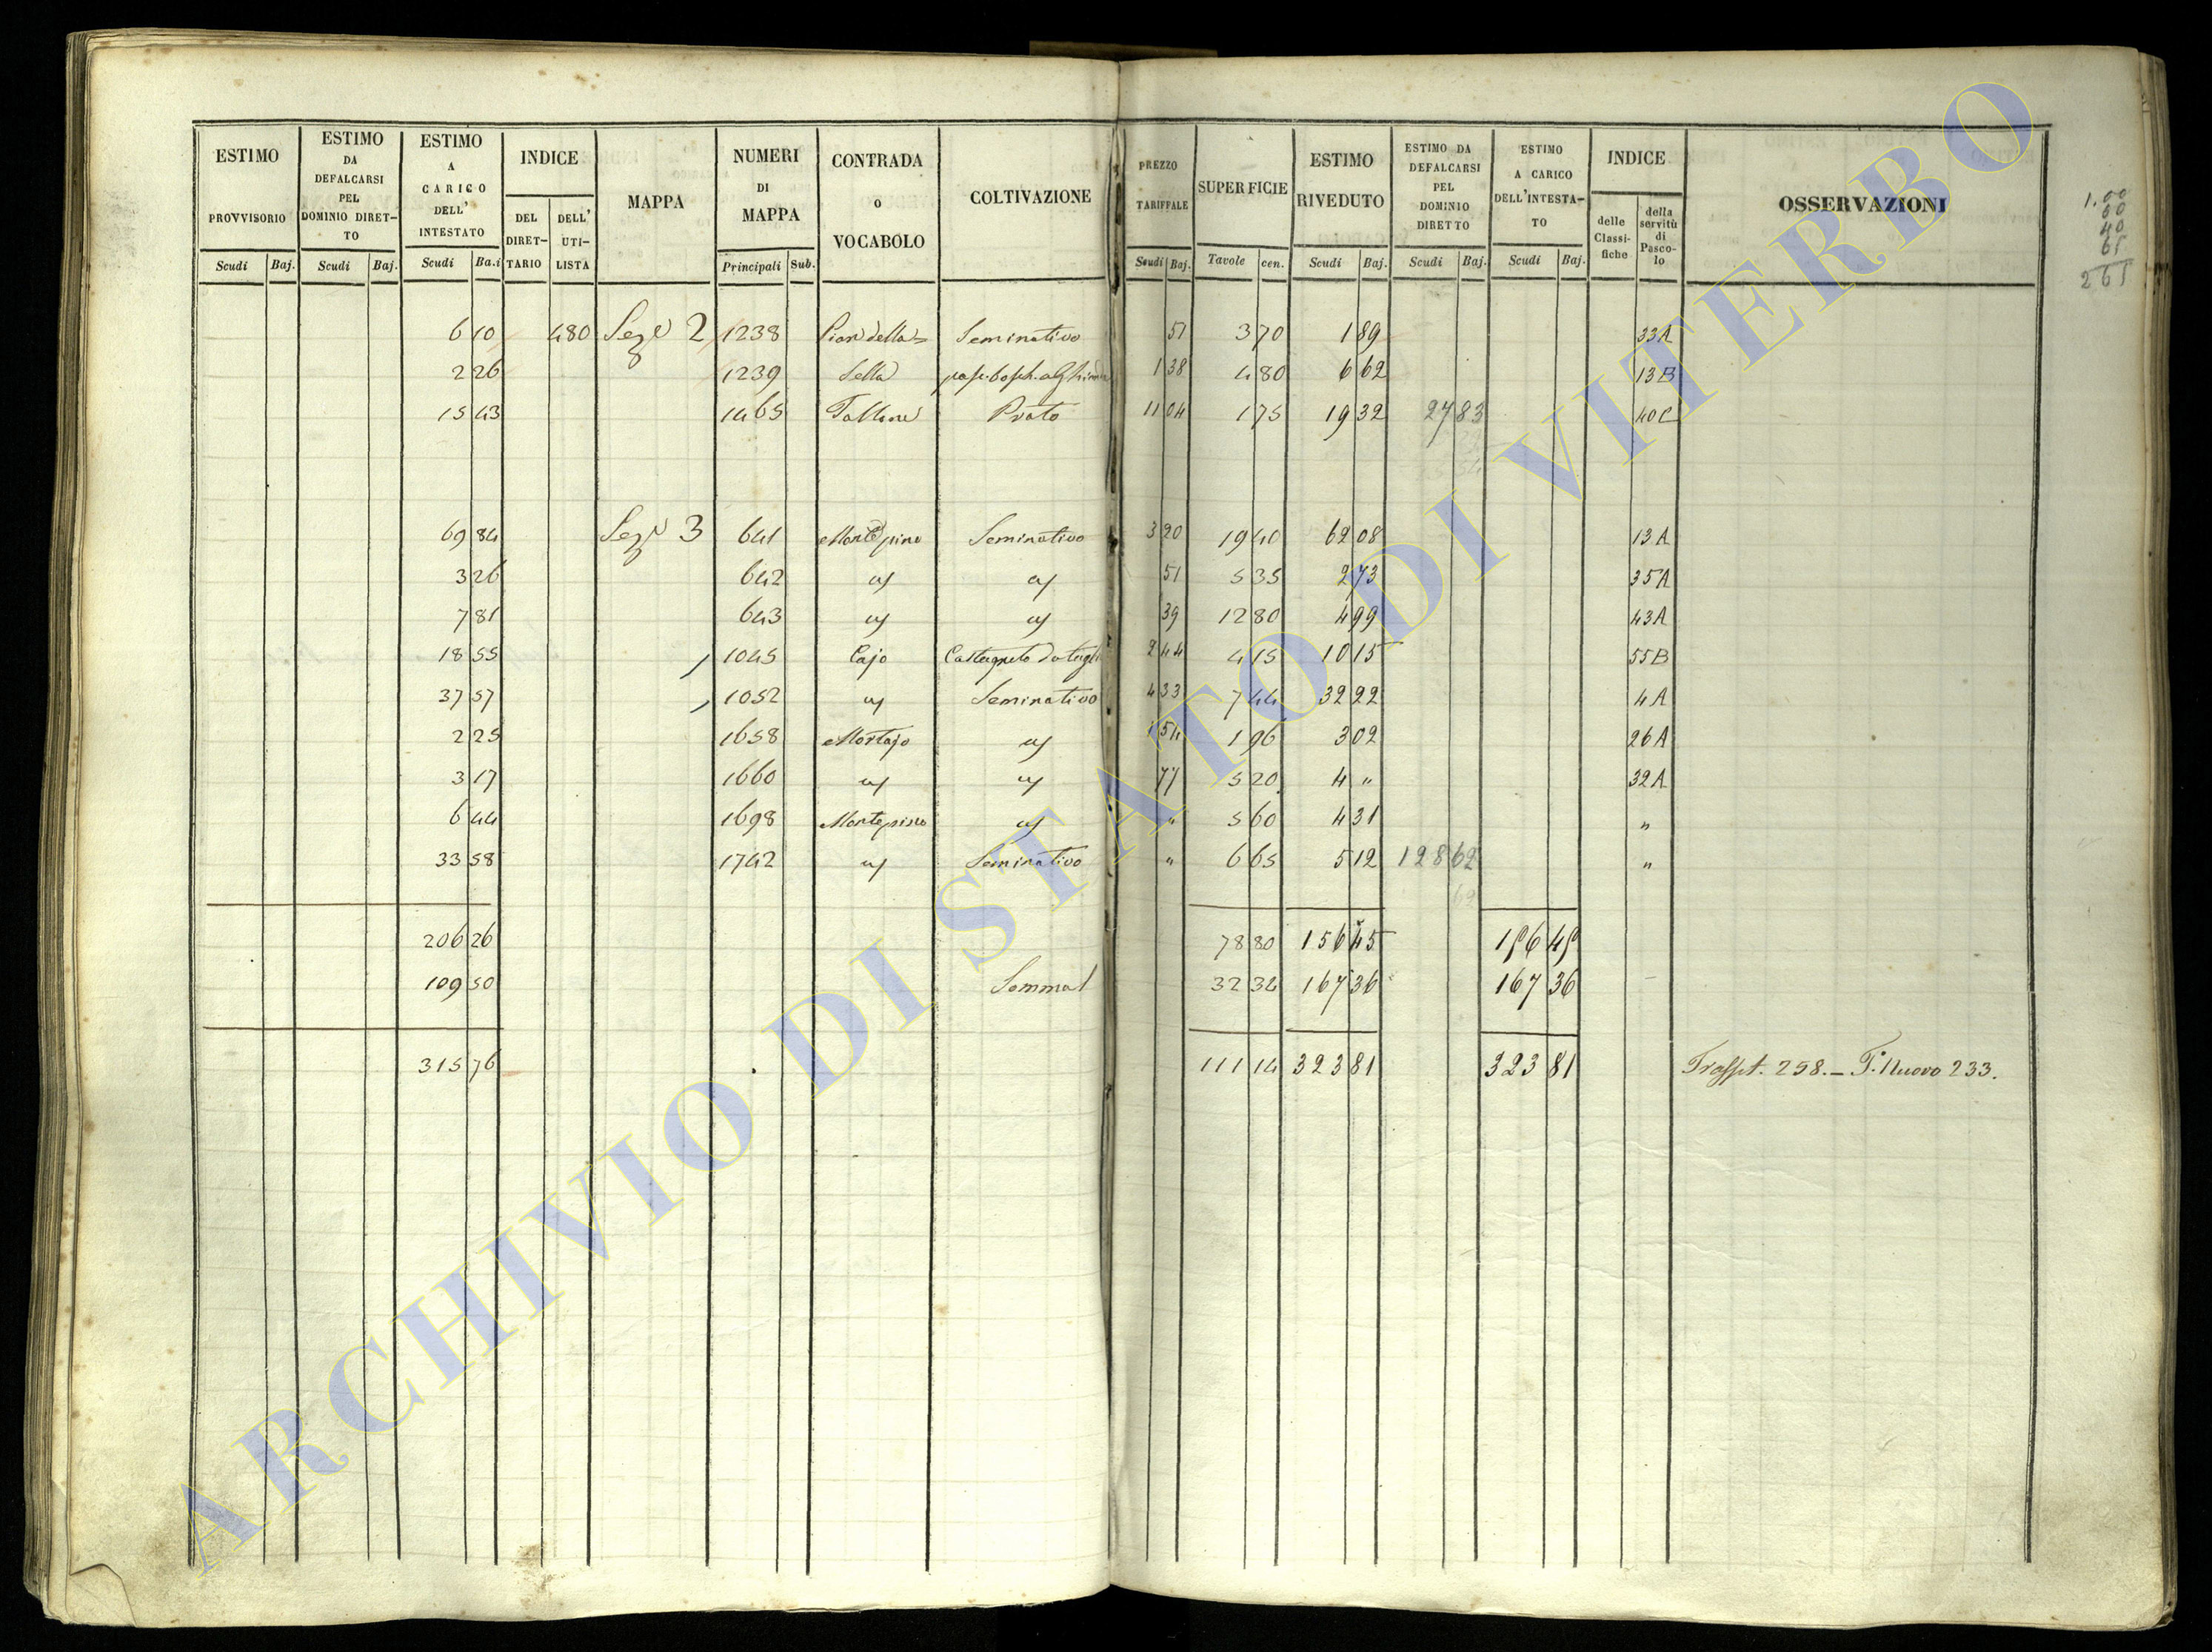 ESTIMO PROVVISORIO
ESTIMO DA DEFALCARSI PEL DOMINIO DIRET-TO
ESTIMO A CARICO DELL' INTESTATO
INDICE
DEL DIRET-TARIO
DELL' UTI-LISTA
MAPPA
NUMERI DI MAPPA
CONTRADA O VOCABOLO
COLTIVAZIONE
PREZZO TARIFFALE
SUPERFICIE
ESTIMO RIVEDUTO
ESTIMO DA DEFALCARSI PEL DOMINIO DIRETTO
ESTIMO A CARICO DELL'INTESTA-TO
INDICE
delle Classi-fiche
della servitù di Pasco-lo
OSSERVAZIONI
Scudi Baj. Scudi Baj. Scudi Ba.i Principali Sub. Scudi Baj. Tavole cen. Scudi Baj. Scudi Baj. Scudi Baj.
1.00
60
40
65
265
6 10 480 2 1238 Seminativo 51 3 70 1 89 33A
2 26 1239 Sella 1 38 4 80 6 62 13B
15 43 1465 Prato 11 04 1 75 19 32 27 83 40C
69 84 3 641 Monte pino Seminativo 3 20 19 40 62 08 13A
3 26 642 51 5 35 2 73 35A
7 81 643 39 12 80 4 99 43A
18 55 1045 Cajo Castagneto da 2 44 4 15 10 15 55B
37 57 1052 Seminativo 4 33 7 44 32 22 4A
2 25 1658 Mortajo 1 54 1 96 3 02 26A
3 17 1660 77 5 20 4 " 32A
6 44 1698 Monte pino " 5 60 4 31 "
33 58 1742 Seminativo " 6 65 5 12 128 62 "
206 26 78 80 156 45 156 45
109 50 32 34 167 36 167 36
315 76 111 14 323 81 323 81 258. – T. Nuovo 233.
ARCHIVIO DI STATO DI VITERBO